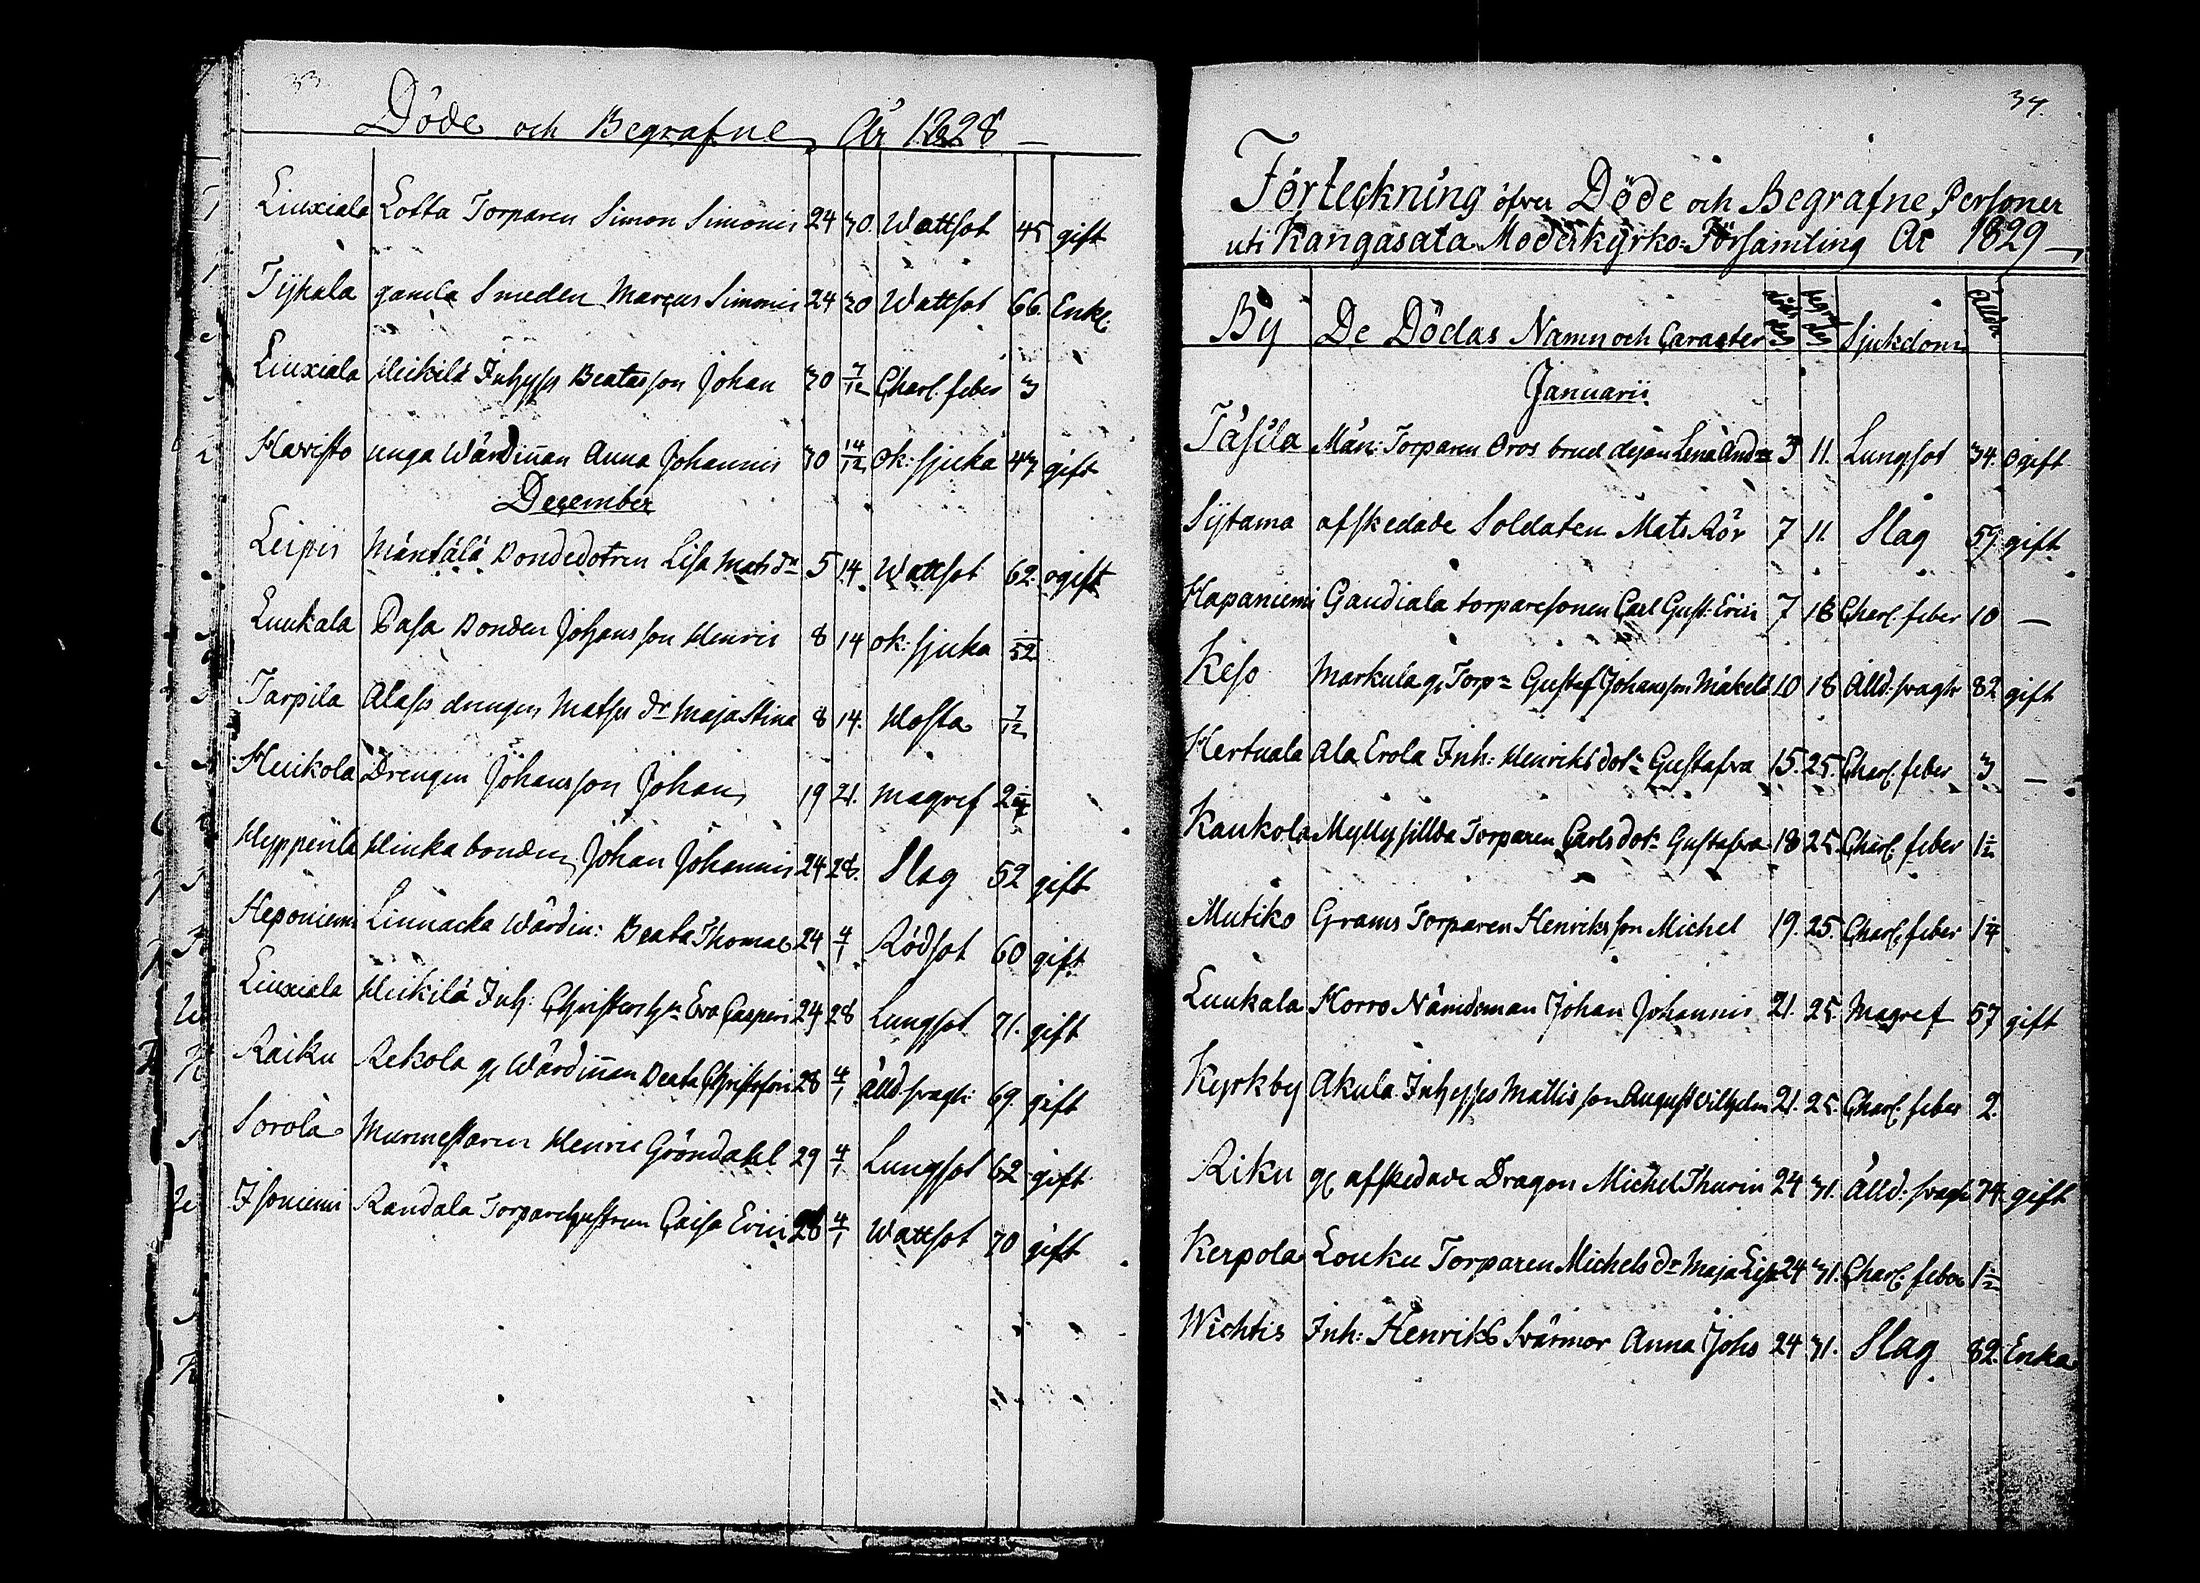 33.
Döde och Begrafne År 1828 —
Liuxiala Lotta Torparen Simon Simonis 24 30. Wattsot 45 gift
Tyhala gamla Smeden Marcus Simonis 24 30 Wattsot 66. Enkl:
Liuxiala Heikilä Inhyses Beatas son Johan 30 7/12 Charl. feber 3
Havisto unga Wärdinnan Anna Johannis 30 14/12 ok: sjuka 43 gift
December
Leipis Mäntälä Bondedotren Lisa Mats dr 5 14. Wattsot 62. ogift
Luukala Pasa Bonden Johans son Henric 8 14 ok: sjuka /52
Tarpila Alases drengen Matses dr Maja Stina 8 14. Hosta 7/12
Huikola Drengen Johansson Johan 19 21. magref 2
Hyppärilä Hinka bonden Johan Johannis 24 28. Slag 52 gift
Heponiemi Linnacka Wärdin: Beata Thomae 24 4/1 Rödsot 60 gift
Liuxiala Heikilä Inh: Christers h:u Eva Casperi 24 28 Lungsot 71. gift
Raiku Rekola gl Wärdinnan Beata Christofori 28 4/1 ålld. svagh: 69. gift
Sorola Murmestaren Henric Gröndahl 29 4/1 Lungsot 62 gift
Isoniemi Randala Torparehustrun Caisa Erici 28 4/1 Wattsot 70 gift
34.
Förteckning öfver Döde och Begrafne Personer
uti Kangasala Moderkyrko-Församling År 1829 —
By De Dödas Namn och Caracter död den begr. den Sjukdom Ålder
Januarii
Täsila Män: Torparen Oros brud dejan Lena Andr 3 11. Lungsot 34. Ogift
Sytama afskedade Soldaten Mats Rör 7 11 Slag 59 gift
Hapaniemi Gaudiala torparesonen Carl Gust. Erici 7 18 Charl. feber 10 —
Keso Markula gl Torp:n Gustaf Johansson Mäkelä 10 18 Ålld. svagh 82 gift
Hertuala Ala Erola Inh: Henriks dotr Gustafva 15. 25. Charl. feber 3 —
Kaukola Myllysillda Torparen Carls dotr Gustafva 18 25. Charl. feber 1 1/2
Mutiko Grams Torparen Henriks son Michel 19. 25. Charl. feber 1 1/4
Luukala Horro Nämdeman Johan Johannis 21. 25. Magref 57 gift
Kyrkby Akula Inhyses Mattis son August Vilhelm 21. 25. Charl. feber 2.
Riku gl afskedade Dragon Michel Thurin 24 31. Ålld. svagh 74. gift
Kerpola Louku Torparen Michels dr Maja Lisa 24 31. Charl. feber 1 1/2
Wichtis Inh: Henriks Svärmor Anna Johs 24 31. Slag 82. Enka